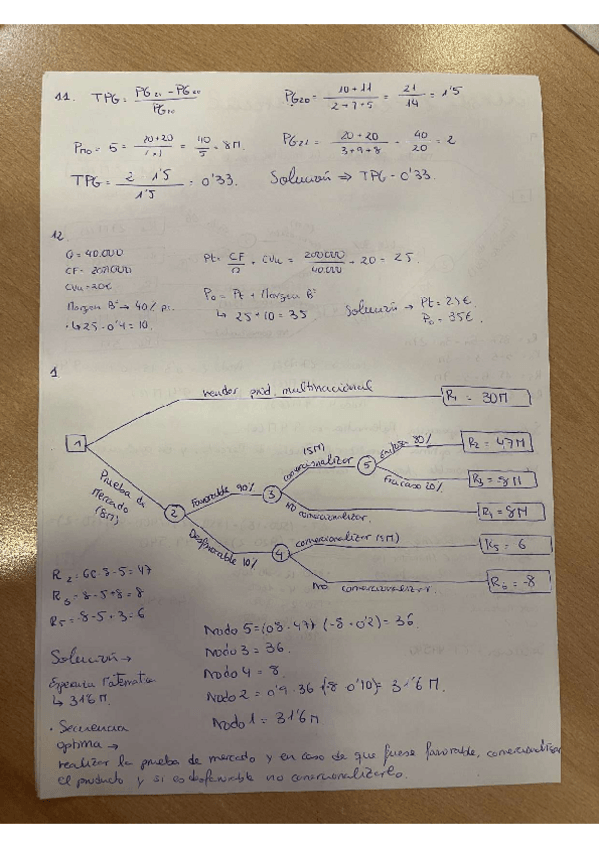 11. TPG = PG21 - PG20 / PG20
PG20 = 10 + 11 / 2 + 7 + 5 = 21 / 14 = 1'5
= 8M.
PG21 = 20 + 20 / 3 + 9 + 8 = 40 / 20 = 2
TPG = 2 - 1'5 / 1'5 = 0'33.
Solución ⇒ TPG = 0'33.
12.
Q = 40.000
CF = 200.000
CVu = 20€
Margen Bº → 40% pt.
↳ 25 · 0'4 = 10.
Pt = CF / Q + CVu = 200.000 / 40.000 + 20 = 25.
Po = Pt + Margen Bº
↳ 25 + 10 = 35
Solución → Pt = 25€
Po = 35€.
1.
vender prod. multinacional
R1 = 30M
1
Prueba de mercado (8M)
2
Favorable 90%
3
(5M)
comercializar
5
Éxito 80%
R2 = 47M
Fracaso 20%
R3 = 8M
No comercializar.
R4 = 8M
Desfavorable 10%
4
comercializar (5M)
R5 = 6
No comercializar.
R6 = -8
R2 = 60 - 8 - 5 = 47
R3 = -8 - 5 + 8 = 8
R5 = -8 - 5 + 3 = 6
Nodo 5 = (0'8 · 47) (-8 · 0'2) = 36.
Nodo 3 = 36.
Nodo 4 = 8.
Nodo 2 = 0'9 · 36 (-8 · 0'10) = 31'6M.
Nodo 1 = 31'6M
Solución →
Esperanza Matemática
↳ 31'6M.
· Secuencia
óptima →
realizar la prueba de mercado y en caso de que fuese favorable, comercializar
el producto y si es desfavorable no comercializarlo.